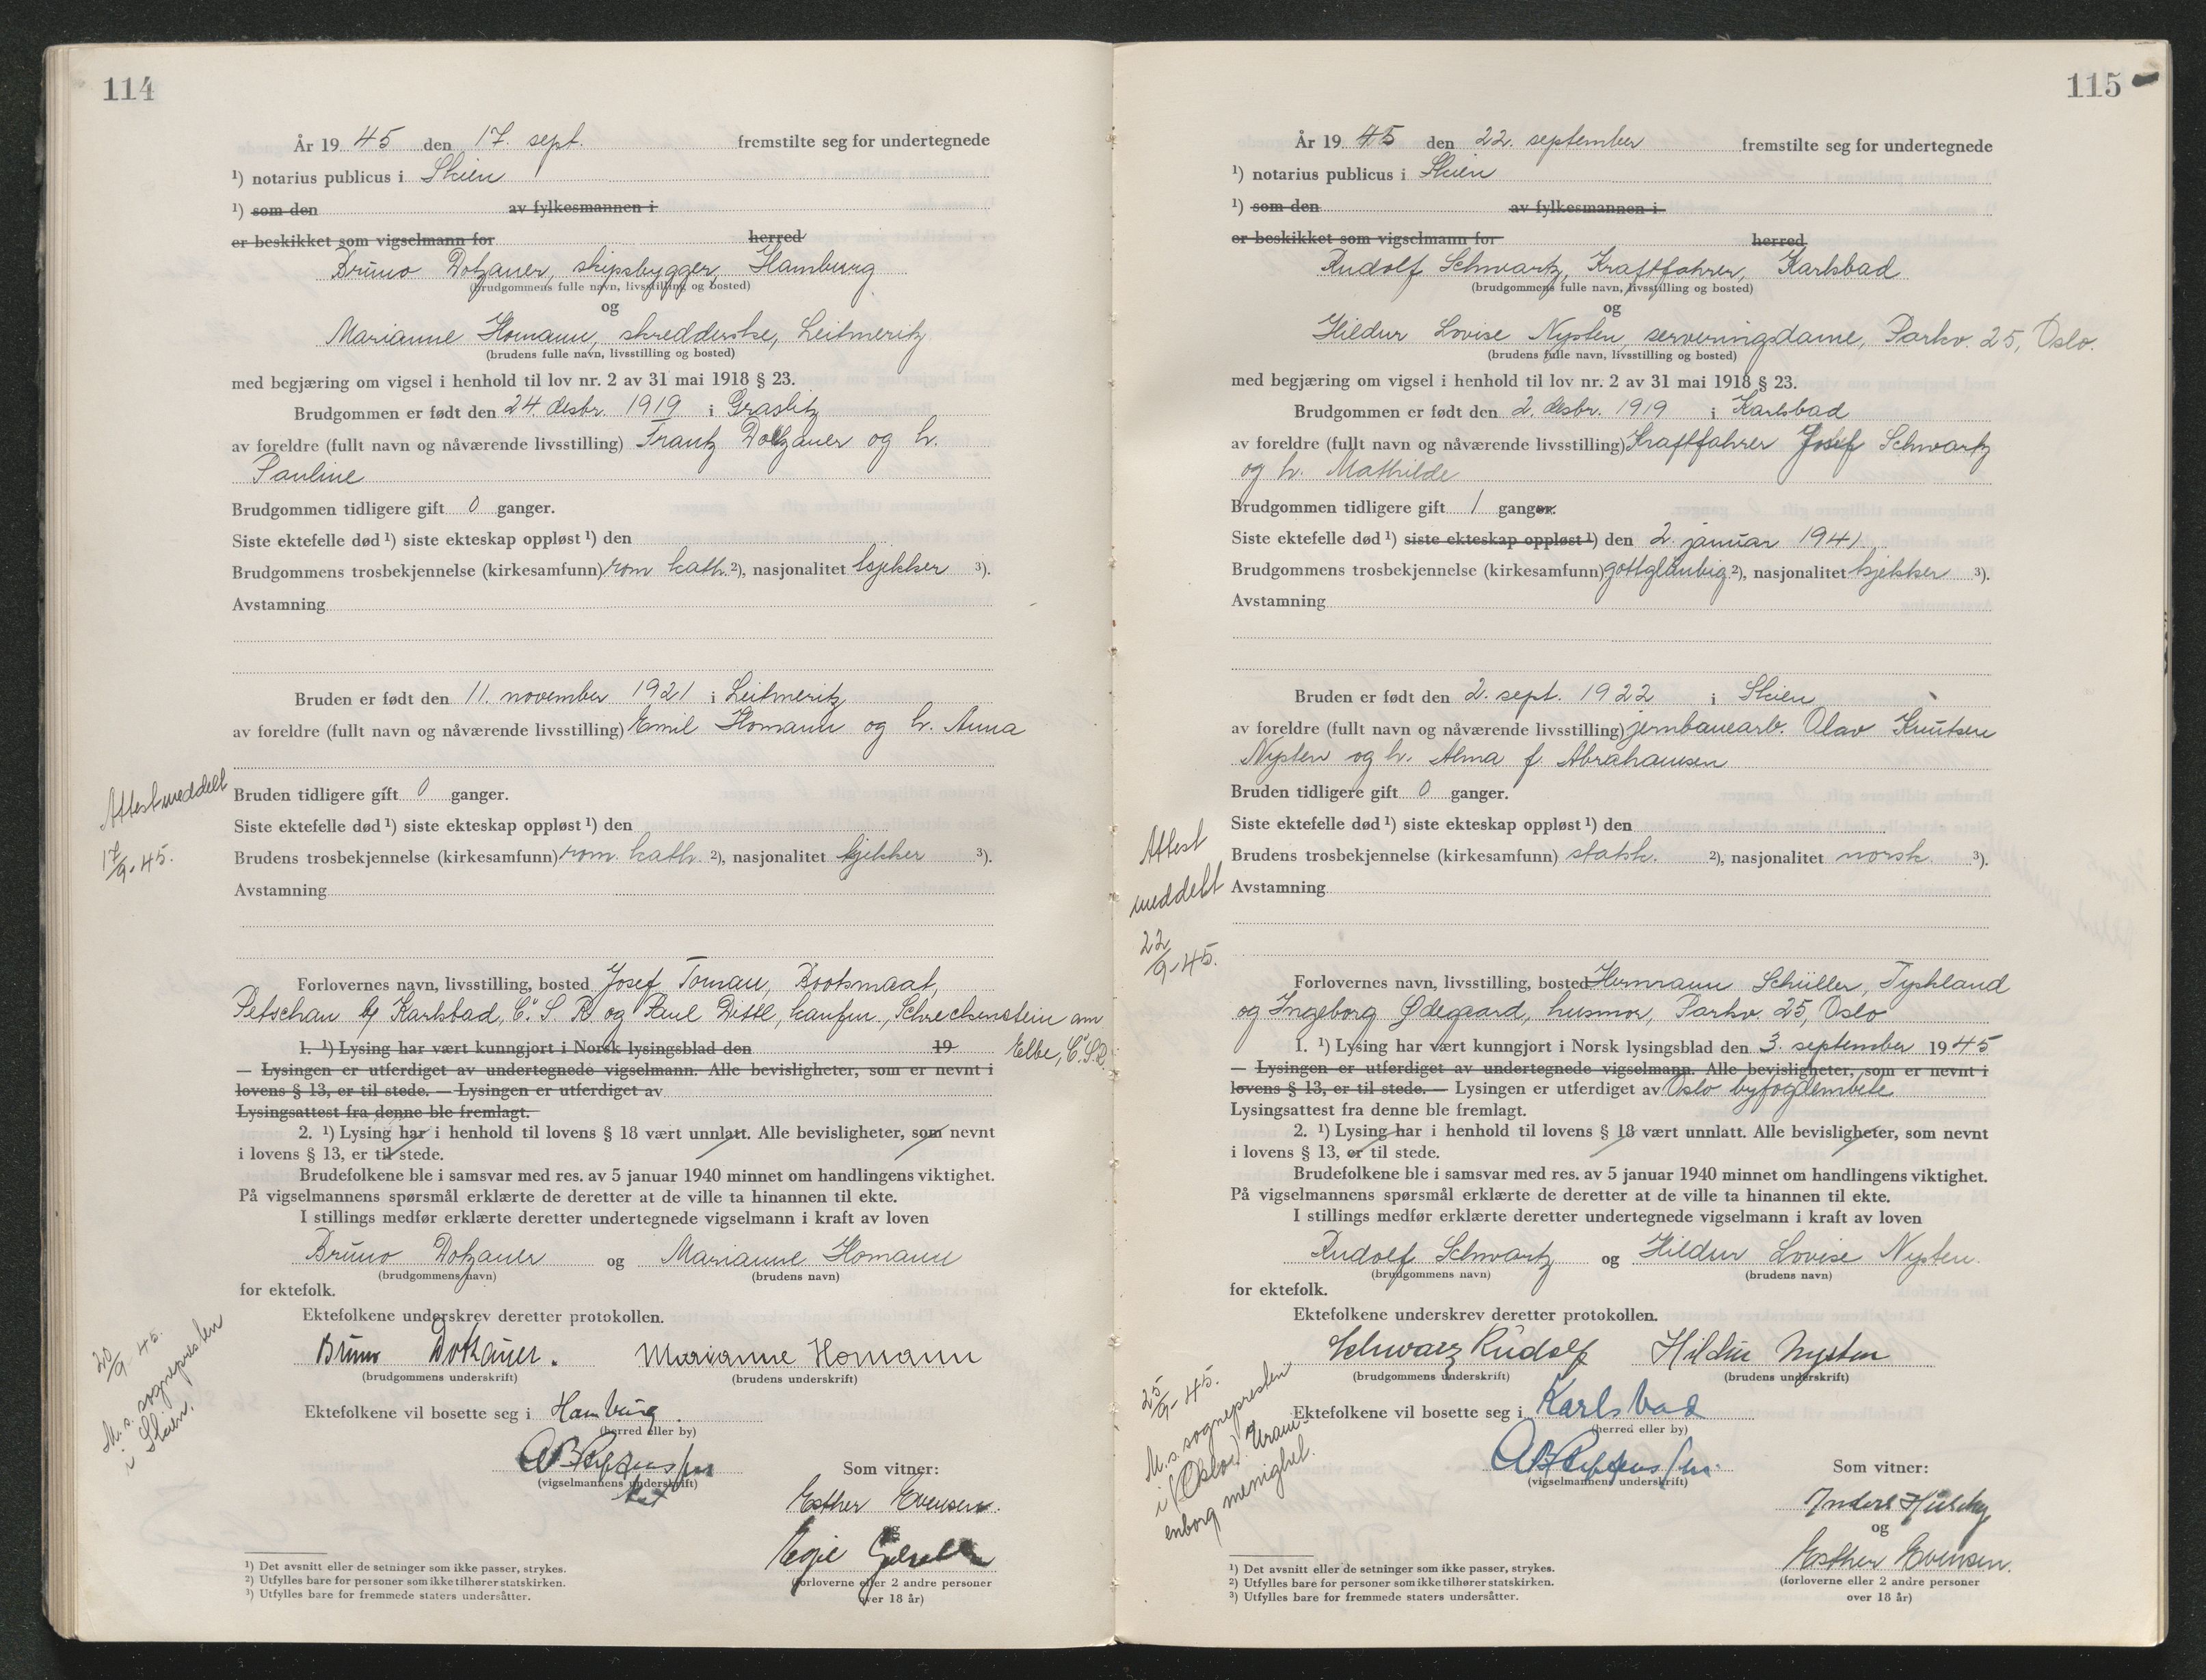 114
År 19 45 den 17. sept. fremstilte seg for undertegnede
¹) notarius publicus i Skien
¹) som den av fylkesmannen i
er beskikket som vigselmann for herred
Bruno Dotzauer, skipsbygger, Hamburg
(brudgommens fulle navn, livsstilling og bosted)
og
Marianne Homann, skredderske, Leitmeritz
(brudens fulle navn, livsstilling og bosted)
med begjæring om vigsel i henhold til lov nr. 2 av 31 mai 1918 § 23.
Brudgommen er født den 24. desbr. 1919 i Graslitz
av foreldre (fullt navn og nåværende livsstilling) Frantz Dotzauer og h.
Pauline
Brudgommen tidligere gift 0 ganger.
Siste ektefelle død ¹) siste ekteskap oppløst ¹) den
Brudgommens trosbekjennelse (kirkesamfunn) rom kath. ²), nasjonalitet tsjekker ³).
Avstamning
Bruden er født den 11. november 1921 i Leitmeritz
av foreldre (fullt navn og nåværende livsstilling) Emil Homann og h. Anna
Attest meddelt
17/9-45.
Bruden tidligere gift 0 ganger.
Siste ektefelle død ¹) siste ekteskap oppløst ¹) den
Brudens trosbekjennelse (kirkesamfunn) rom. kath. ²), nasjonalitet tjekker ³).
Avstamning
Forlovernes navn, livsstilling, bosted Josef Toman, Bootsmaat,
Petschau b/ Karlsbad, C. S. R. og Paul Dittl, kaufm., Schreckenstein am
Elbe, C.S.R.
1. ¹) Lysing har vært kunngjort i Norsk lysingsblad den 19
— Lysingen er utferdiget av undertegnede vigselmann. Alle bevisligheter, som er nevnt i
lovens § 13, er til stede. — Lysingen er utferdiget av
Lysingsattest fra denne ble fremlagt.
2. ¹) Lysing har i henhold til lovens § 18 vært unnlatt. Alle bevisligheter, som nevnt
i lovens § 13, er til stede.
Brudefolkene ble i samsvar med res. av 5 januar 1940 minnet om handlingens viktighet.
På vigselmannens spørsmål erklærte de deretter at de ville ta hinannen til ekte.
I stillings medfør erklærte deretter undertegnede vigselmann i kraft av loven
Bruno Dotzauer og Marianne Homann
(brudgommens navn) (brudens navn)
for ektefolk.
Ektefolkene underskrev deretter protokollen.
Bruno Dotzauer. Marianne Homann
(brudgommens underskrift) (brudens underskrift)
20/9-45.
M.s. sognepresten
i Skien.
Ektefolkene vil bosette seg i Hamburg.
(herred eller by)
(vigselmannens underskrift)
Som vitner:
Esther Evensen.
og
(forloverne eller 2 andre personer
over 18 år)
¹) Det avsnitt eller de setninger som ikke passer, strykes.
²) Utfylles bare for personer som ikke tilhører statskirken.
³) Utfylles bare for fremmede staters undersåtter.
115
År 19 45 den 22. september fremstilte seg for undertegnede
¹) notarius publicus i Skien
¹) som den av fylkesmannen i
er beskikket som vigselmann for herred
Rudolf Schwartz, Kraftfahrer, Karlsbad
(brudgommens fulle navn, livsstilling og bosted)
og
Hildur Lovise Nysten, serveringsdame, Parkv. 25, Oslo.
(brudens fulle navn, livsstilling og bosted)
med begjæring om vigsel i henhold til lov nr. 2 av 31 mai 1918 § 23.
Brudgommen er født den 2. desbr. 1919 i Karlsbad
av foreldre (fullt navn og nåværende livsstilling) Kraftfahrer Josef Schwartz
og h. Mathilde
Brudgommen tidligere gift 1 ganger.
Siste ektefelle død ¹) siste ekteskap oppløst ¹) den 2. januar 1941.
Brudgommens trosbekjennelse (kirkesamfunn) gottgläubig ²), nasjonalitet tjekker ³).
Avstamning
Bruden er født den 2. sept. 1922 i Skien
av foreldre (fullt navn og nåværende livsstilling) jernbanearb. Olav Knutsen
Nysten og h. Alma f. Abrahamsen
Bruden tidligere gift 0 ganger.
Siste ektefelle død ¹) siste ekteskap oppløst ¹) den
Attest
meddelt
22/9-45.
Brudens trosbekjennelse (kirkesamfunn) statsk. ²), nasjonalitet norsk. ³).
Avstamning
Forlovernes navn, livsstilling, bosted Hermann Schüller, Tyskland
og Ingeborg Ødegaard, husmor, Parkv. 25, Oslo
1. ¹) Lysing har vært kunngjort i Norsk lysingsblad den 3. september 1945
— Lysingen er utferdiget av undertegnede vigselmann. Alle bevisligheter, som er nevnt i
lovens § 13, er til stede. — Lysingen er utferdiget av Oslo byfogdembete
Lysingsattest fra denne ble fremlagt.
2. ¹) Lysing har i henhold til lovens § 18 vært unnlatt. Alle bevisligheter, som nevnt
i lovens § 13, er til stede.
Brudefolkene ble i samsvar med res. av 5 januar 1940 minnet om handlingens viktighet.
På vigselmannens spørsmål erklærte de deretter at de ville ta hinannen til ekte.
I stillings medfør erklærte deretter undertegnede vigselmann i kraft av loven
Rudolf Schwartz og Hildur Lovise Nysten.
(brudgommens navn) (brudens navn)
for ektefolk.
Ektefolkene underskrev deretter protokollen.
Schwarz Rudolf Hildur Nysten
(brudgommens underskrift) (brudens underskrift)
25/9-45.
M.s. sognepresten
i (Oslo). Urani-
enborg menighet.
Ektefolkene vil bosette seg i Karlsbad
(herred eller by)
(vigselmannens underskrift)
Som vitner:
og
Esther Evensen.
(forloverne eller 2 andre personer
over 18 år)
¹) Det avsnitt eller de setninger som ikke passer, strykes.
²) Utfylles bare for personer som ikke tilhører statskirken.
³) Utfylles bare for fremmede staters undersåtter.